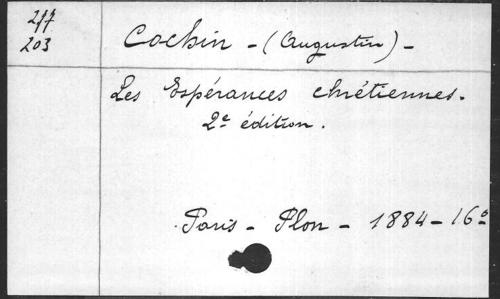 217
203
Cochin - (Augustin) -
Les Espérances chrétiennes.
2e édition.
Paris - Plon - 1884 - 16º